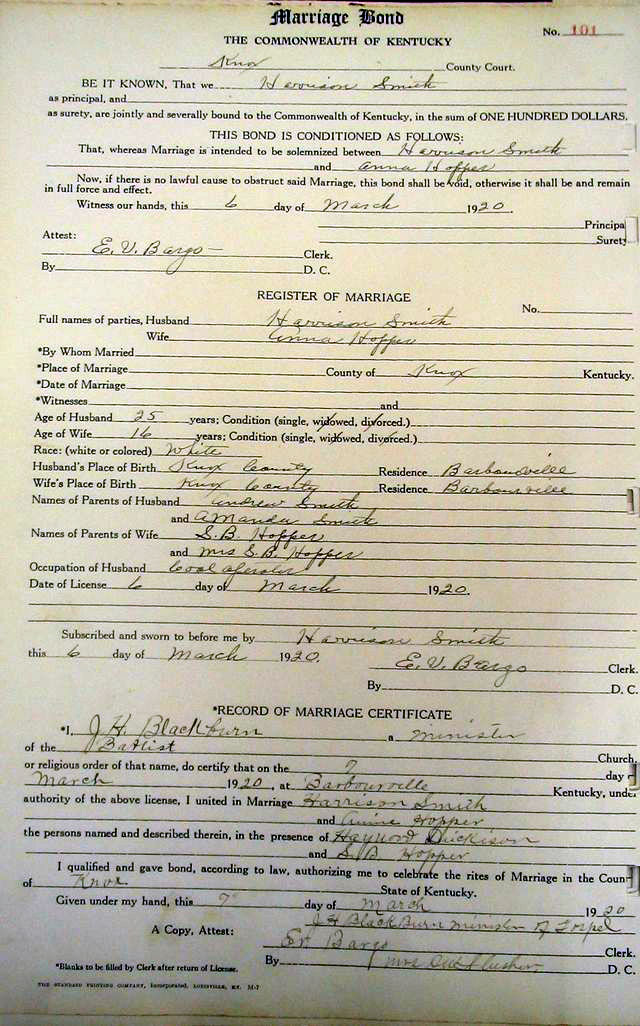 Marriage Bond
No. 101
THE COMMONWEALTH OF KENTUCKY
Knox County Court.
BE IT KNOWN, That we Harrison Smith
as principal, and
as surety, are jointly and severally bound to the Commonwealth of Kentucky, in the sum of ONE HUNDRED DOLLARS.
THIS BOND IS CONDITIONED AS FOLLOWS:
That, whereas Marriage is intended to be solemnized between Harrison Smith
and Anna Hopper
Now, if there is no lawful cause to obstruct said Marriage, this bond shall be void, otherwise it shall be and remain
in full force and effect.
Witness our hands, this 6 day of March 1920.
Principa
Surety
Attest:
E. V. Bargo Clerk.
By D. C.
REGISTER OF MARRIAGE
No.
Full names of parties, Husband Harrison Smith
Wife Anna Hopper
*By Whom Married
*Place of Marriage County of Knox Kentucky.
*Date of Marriage
*Witnesses and
Age of Husband 25 years; Condition (single, widowed, divorced.)
Age of Wife 16 years; Condition (single, widowed, divorced.)
Race: (white or colored) White
Husband's Place of Birth Knox County Residence Barbourville
Wife's Place of Birth Knox County Residence Barbourville
Names of Parents of Husband Andrew Smith
and Amanda Smith
Names of Parents of Wife S. B. Hopper
and Mrs S. B. Hopper
Occupation of Husband Coal operator
Date of License 6 day of March 1920.
Subscribed and sworn to before me by Harrison Smith
this 6 day of March 1920.
E. V. Bargo Clerk.
By D. C.
*RECORD OF MARRIAGE CERTIFICATE
*I, J. H. Blackburn a minister
of the Baptist Church,
or religious order of that name, do certify that on the 7 day
March 1920, at Barbourville Kentucky, under
authority of the above license, I united in Marriage Harrison Smith
and Annie Hopper
the persons named and described therein, in the presence of Haynord Dickison
and S. B Hopper
I qualified and gave bond, according to law, authorizing me to celebrate the rites of Marriage in the Coun
of Knox State of Kentucky.
Given under my hand, this 7 day of March 1920
J H Black Burn minister of Gospel
A Copy, Attest: E V Bargo Clerk.
By Mrs D. C.
*Blanks to be filled by Clerk after return of License.
THE STANDARD PRINTING COMPANY, Incorporated, LOUISVILLE, KY. M-7